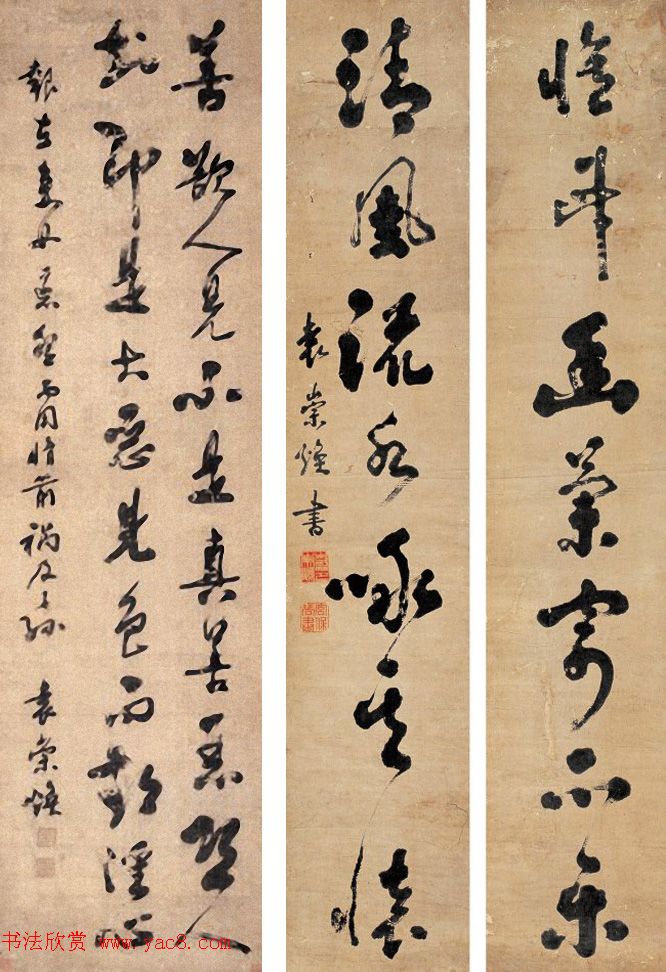 幽蘭寄所樂
清風流水詠其懷
袁崇煥書
善欲人見不是真善惡恐人
知即是大惡見色而起淫心
報在妻女匿怨而用暗箭禍及子孫 袁崇煥
书法欣赏 www.yac8.com